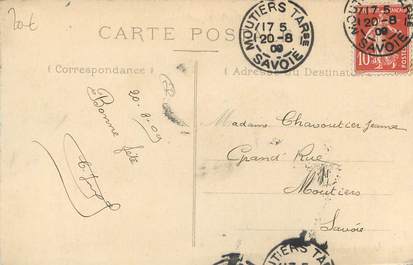 20 €
CARTE POS
MOUTIERS TARSE
17 5
20-8
09
SAVOIE
MOUTIERS TARSE
17 5
20-8
09
SAVOIE
10
(Correspondance)
(Adresse du Destinat
20. 8. 09
Bonne
fête
Madame Chavoutier Jeanne
Grand Rue
Moutiers
Savoie
MOUTIERS TAR
17 5